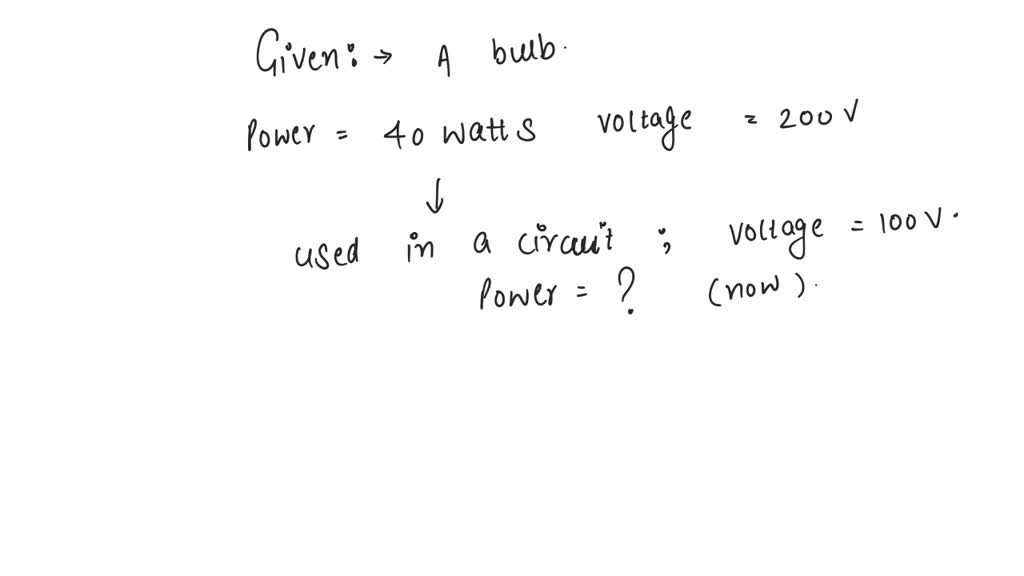 Given:→ A bulb.
Power = 40 watts voltage = 200 V
↓
used in a circuit ; voltage = 100 V.
Power = ? (now).